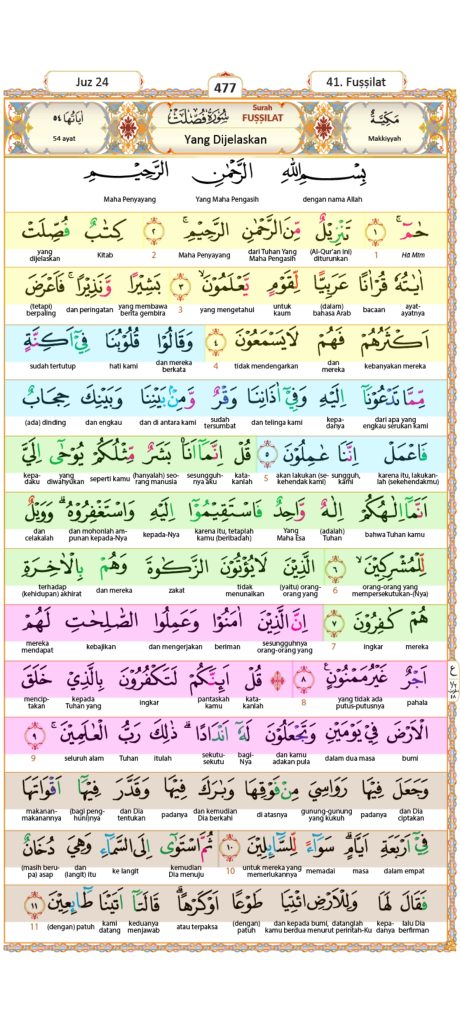 Juz 24
477
41. Fuṣṣilat
مَكِّيَّةٌ
Makkiyyah
سُوْرَةُ فُصِّلَتْ
Surah FUṢṢILAT
Yang Dijelaskan
اٰيَاتُهَا ٥٤
54 ayat
بِسْمِ اللّٰهِ الرَّحْمٰنِ الرَّحِيْمِ
dengan nama Allah Yang Maha Pengasih Maha Penyayang
حٰمۤ ۚ ١ تَنْزِيْلٌ مِّنَ الرَّحْمٰنِ الرَّحِيْمِ ۚ ٢ كِتٰبٌ فُصِّلَتْ
Hā Mīm 1 (Al-Qur'an ini) diturunkan dari Tuhan Yang Maha Pengasih Maha Penyayang 2 Kitab yang dijelaskan
اٰيٰتُهٗ قُرْاٰنًا عَرَبِيًّا لِّقَوْمٍ يَّعْلَمُوْنَ ۙ ٣ بَشِيْرًا وَّنَذِيْرًا ۚ فَاَعْرَضَ
ayat-ayatnya bacaan (dalam) bahasa Arab untuk kaum yang mengetahui 3 yang membawa berita gembira dan peringatan (tetapi) berpaling
اَكْثَرُهُمْ فَهُمْ لَا يَسْمَعُوْنَ ٤ وَقَالُوْا قُلُوْبُنَا فِيْٓ اَكِنَّةٍ
kebanyakan mereka dan mereka tidak mendengarkan 4 dan mereka berkata hati kami sudah tertutup
مِّمَّا تَدْعُوْنَآ اِلَيْهِ وَفِيْٓ اٰذَانِنَا وَقْرٌ وَّمِنْۢ بَيْنِنَا وَبَيْنِكَ حِجَابٌ
dari apa yang engkau serukan kami kepadanya dan telinga kami sudah tersumbat dan di antara kami dan engkau (ada) dinding
فَاعْمَلْ اِنَّنَا عٰمِلُوْنَ ٥ قُلْ اِنَّمَآ اَنَا۠ بَشَرٌ مِّثْلُكُمْ يُوْحٰٓى اِلَيَّ
karena itu, lakukanlah (sekehendakmu) sesungguh, kami akan lakukan (sekehendak kami) 5 katakanlah sesungguhnya aku (hanyalah) seorang manusia seperti kamu yang diwahyukan kepadaku
اَنَّمَآ اِلٰهُكُمْ اِلٰهٌ وَّاحِدٌ فَاسْتَقِيْمُوْٓا اِلَيْهِ وَاسْتَغْفِرُوْهُ ۗ وَوَيْلٌ
bahwa Tuhan kamu (adalah) Tuhan Yang Maha Esa karena itu, tetaplah kamu (beribadah) kepada-Nya dan mohonlah ampunan kepada-Nya dan celakalah
لِّلْمُشْرِكِيْنَ ۙ ٦ الَّذِيْنَ لَا يُؤْتُوْنَ الزَّكٰوةَ وَهُمْ بِالْاٰخِرَةِ
orang-orang yang mempersekutukan-(Nya) 6 (yaitu) orang-orang yang tidak menunaikan zakat dan mereka terhadap (kehidupan) akhirat
هُمْ كٰفِرُوْنَ ٧ اِنَّ الَّذِيْنَ اٰمَنُوْا وَعَمِلُوا الصّٰلِحٰتِ لَهُمْ
mereka ingkar 7 sesungguhnya orang-orang yang beriman dan mengerjakan kebajikan mereka mendapat
اَجْرٌ غَيْرُ مَمْنُوْنٍ ۚ ٨ قُلْ اَىِٕنَّكُمْ لَتَكْفُرُوْنَ بِالَّذِيْ خَلَقَ
pahala yang tidak ada putus-putusnya 8 katakanlah pantaskah kamu ingkar kepada Tuhan Yang menciptakan
الْاَرْضَ فِيْ يَوْمَيْنِ وَتَجْعَلُوْنَ لَهٗٓ اَنْدَادًا ۗ ذٰلِكَ رَبُّ الْعٰلَمِيْنَ ۚ ٩
bumi dalam dua masa dan kamu adakan pula bagi-Nya sekutu-sekutu itulah Tuhan seluruh alam 9
وَجَعَلَ فِيْهَا رَوَاسِيَ مِنْ فَوْقِهَا وَبٰرَكَ فِيْهَا وَقَدَّرَ فِيْهَآ اَقْوَاتَهَا
dan Dia ciptakan padanya gunung-gunung yang kukuh di atasnya dan kemudian Dia berkahi padanya dan Dia tentukan (bagi penghuni)nya makanan-makanannya
فِيْٓ اَرْبَعَةِ اَيَّامٍ ۗ سَوَاۤءً لِّلسَّاۤىِٕلِيْنَ ١٠ ثُمَّ اسْتَوٰٓى اِلَى السَّمَاۤءِ وَهِيَ دُخَانٌ
dalam empat masa memadai untuk mereka yang memerlukannya 10 kemudian Dia menuju ke langit dan (langit) itu (masih berupa) asap
فَقَالَ لَهَا وَلِلْاَرْضِ ائْتِيَا طَوْعًا اَوْ كَرْهًا ۗ قَالَتَآ اَتَيْنَا طَاۤىِٕعِيْنَ ١١
lalu Dia berfirman kepadanya dan kepada bumi, datanglah kamu berdua menurut perintah-Ku (dengan) patuh atau terpaksa keduanya menjawab kami datang (dengan) patuh 11